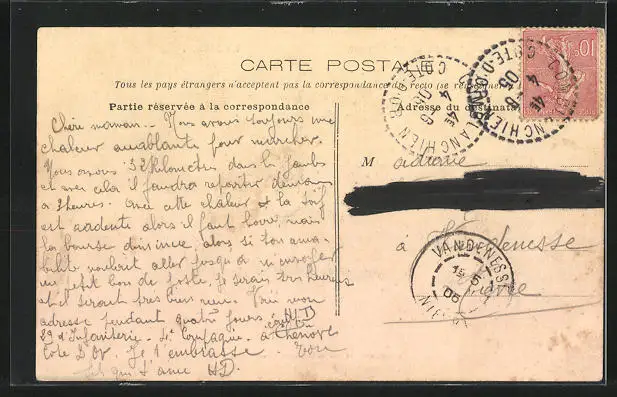 CARTE POSTALE
Tous les pays étrangers n'acceptent pas la correspondance au recto (se renseigner
Partie réservée à la correspondance
Adresse du destinataire
Chère maman. Nous avons toujours une
chaleur accablante pour marcher.
Nous avons 32 kilomètres dans les jambes
et avec cela il faudra repartir demain
à heures. avec cette chaleur et la soif
est ardente alors il faut boire, mais
la bourse diminue, alors si ton ama-
bilité voudrait aller jusqu'à m'envoyer
un petit bon de poste, je serais très heureux
et il serait très bien reçu. Voici mon
adresse pendant quatre jours. HD
29 d'Infanterie. 4e Compagnie. à Chenôve
Côte d'Or. Je t'embrasse. Ton
fils qui t'aime HD.
M adame
à Vandenesse
Nièvre
VANDENESSE
5
06
NIÈVRE
PLANCHIENNE
COTE-D'OR
4
10c